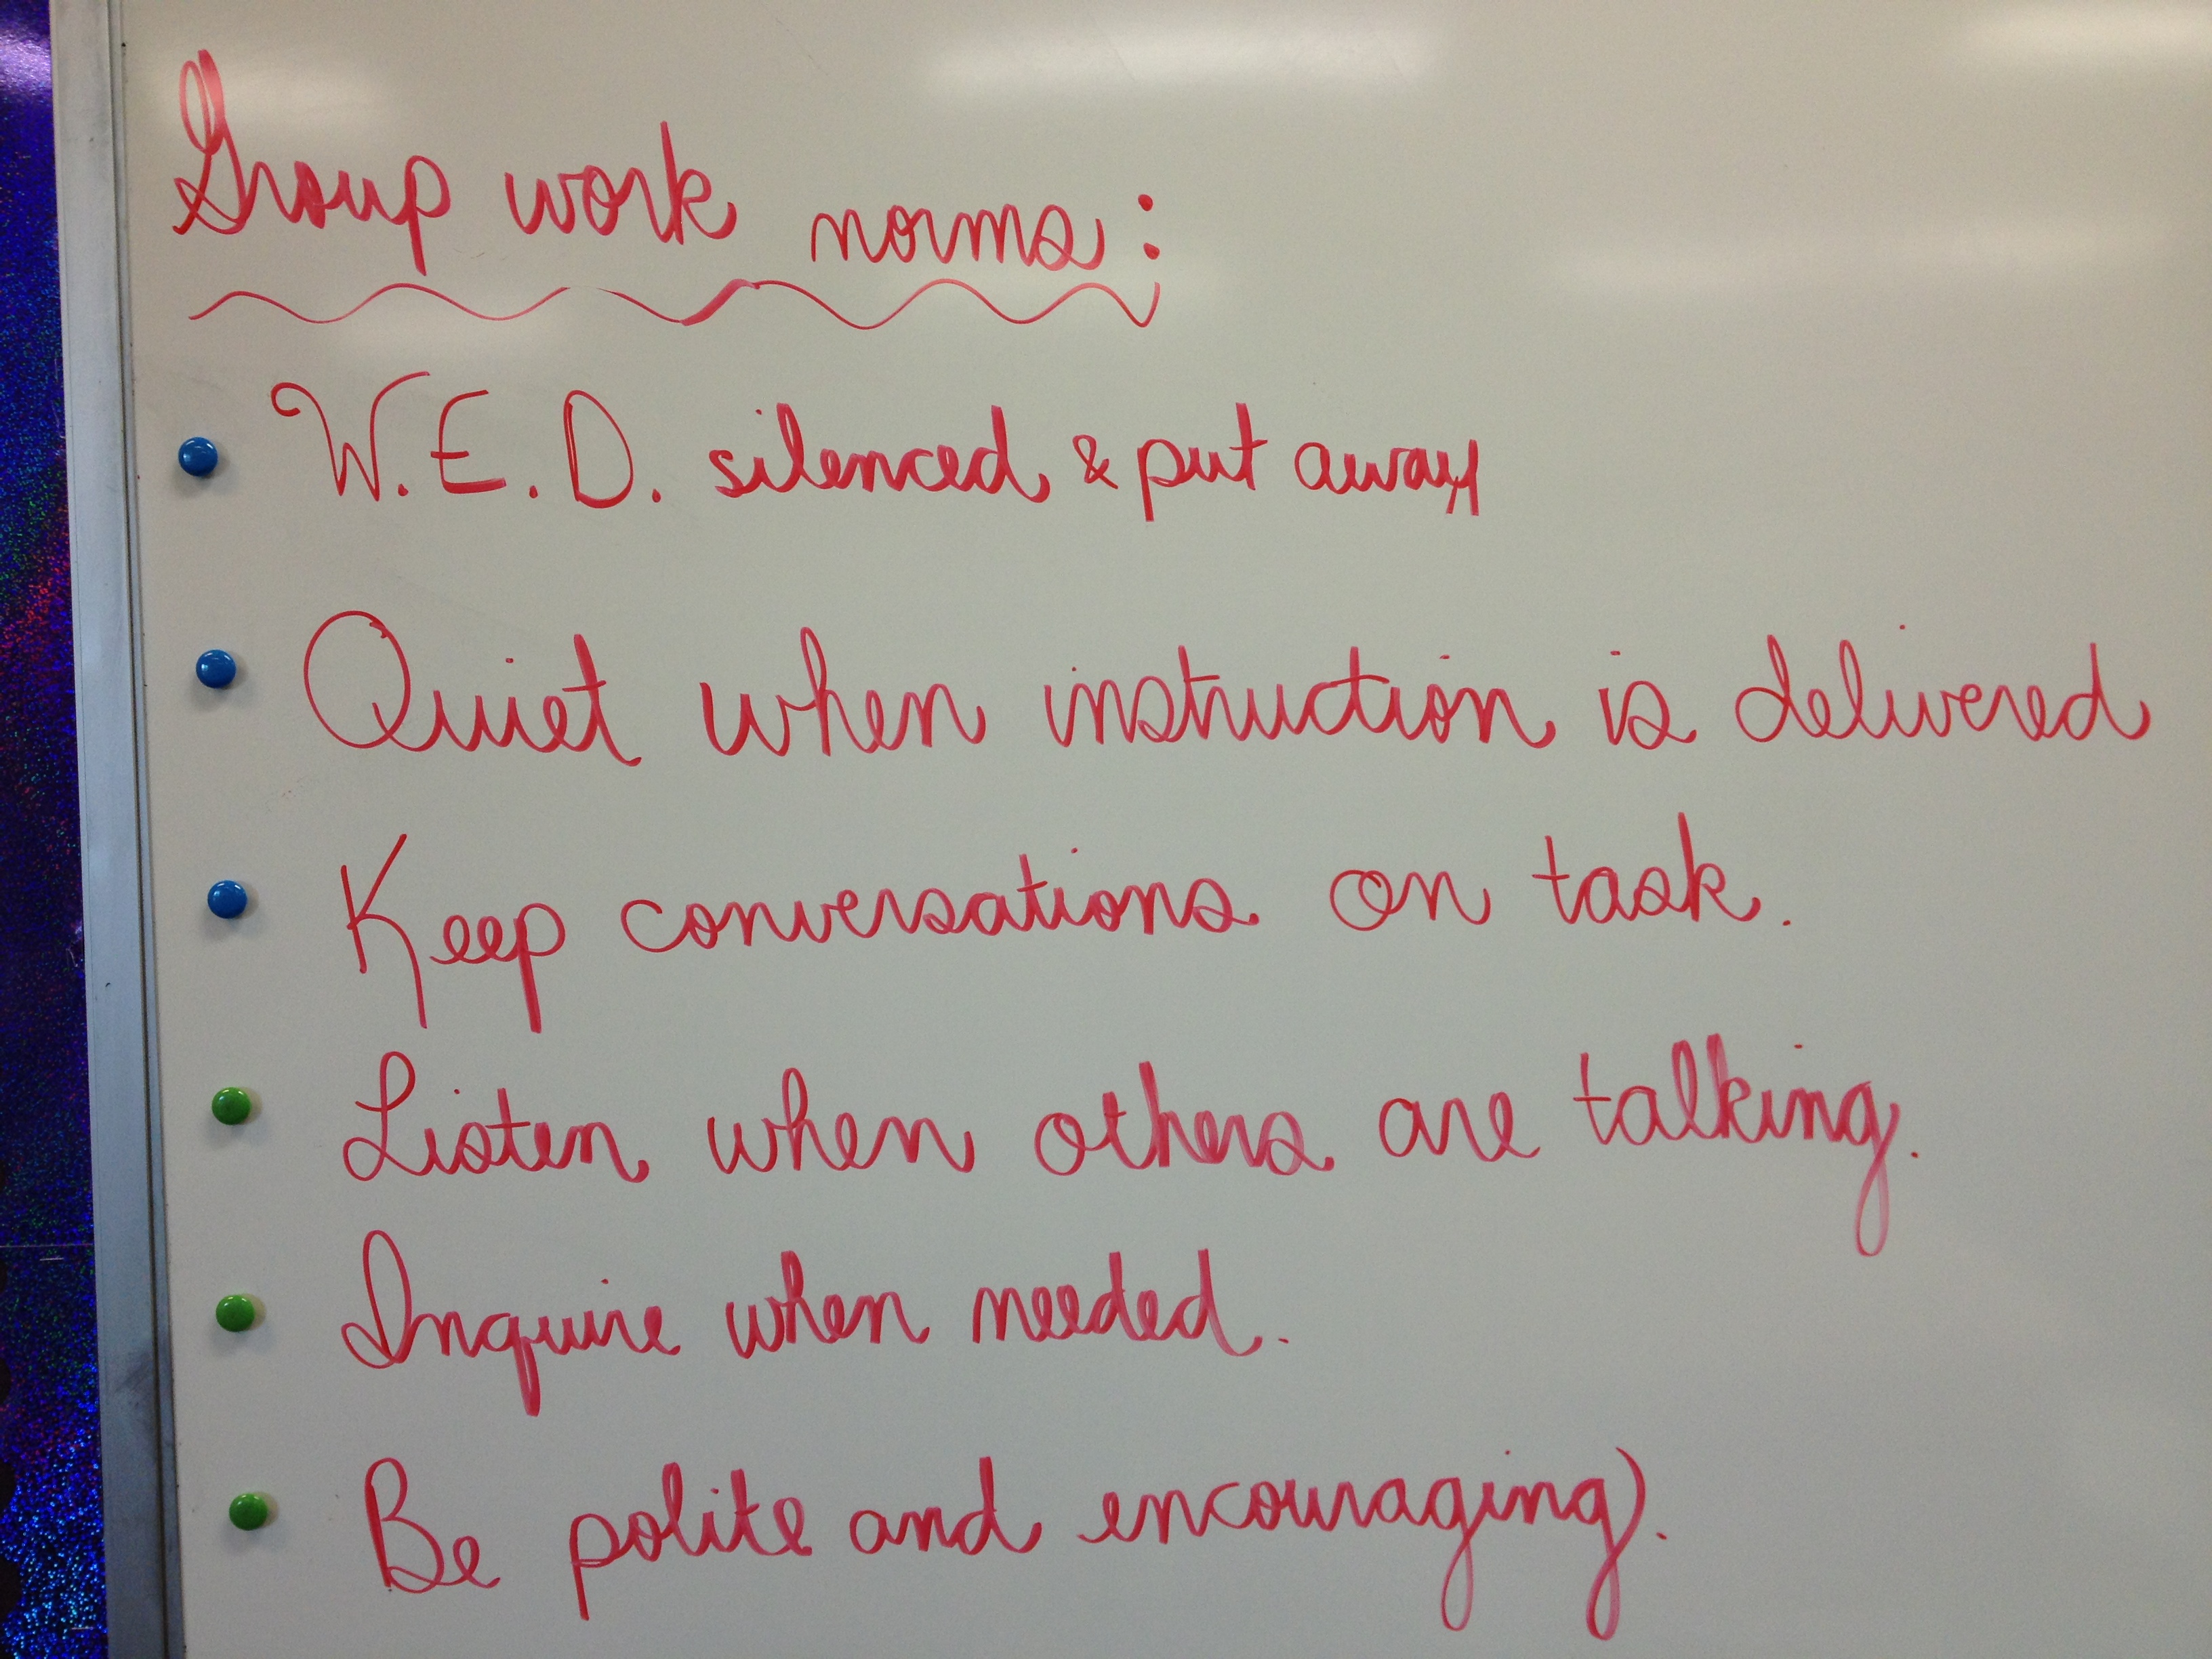 Group work norms:
W.E.D. silenced & put away
Quiet when instruction is delivered
Keep conversations on task.
Listen when others are talking.
Inquire when needed.
Be polite and encouraging.